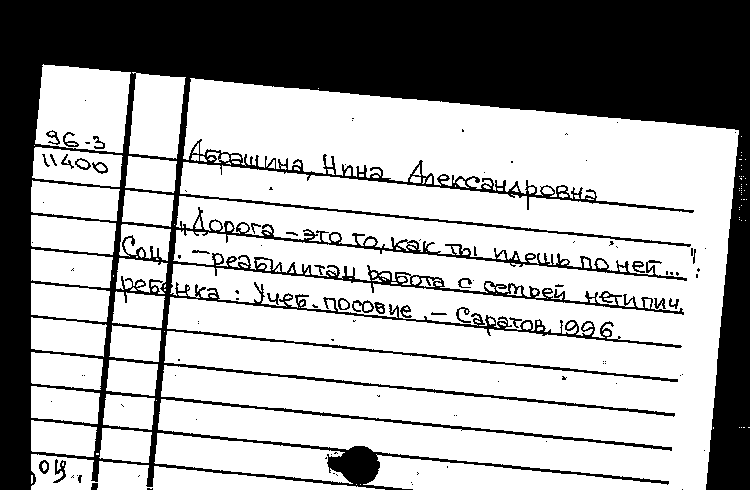 96-3
11400
Абрашина, Нина Александровна
"Дорога - это то, как ты идешь по ней...":
Соц. - реабилитац работа с семьей нетипич.
ребенка : Учеб. пособие. - Саратов, 1996.